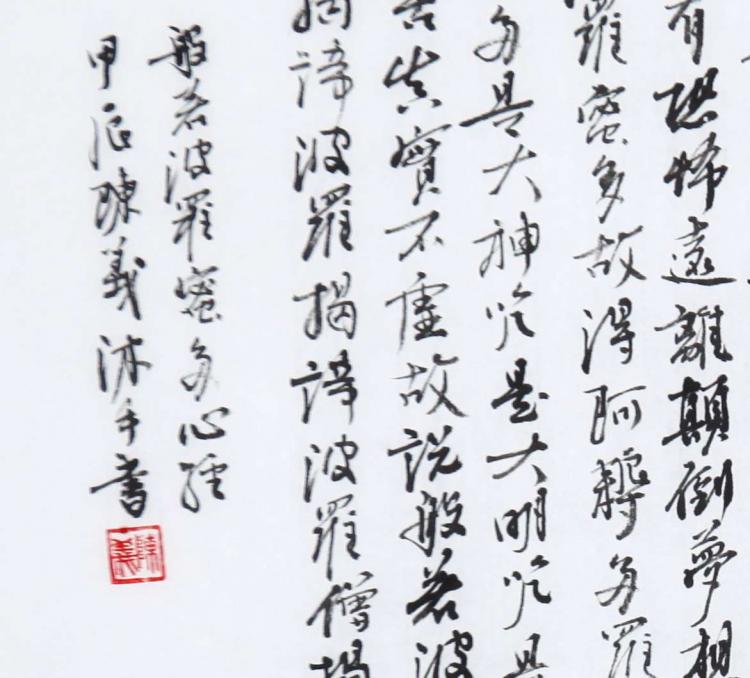 有恐怖遠離顛倒夢想
羅蜜多故得阿耨多羅
多是大神咒是大明咒是
苦真實不虛故說般若波
揭諦波羅揭諦波羅僧揭
般若波羅蜜多心經
甲辰陳義沐手書
陳義